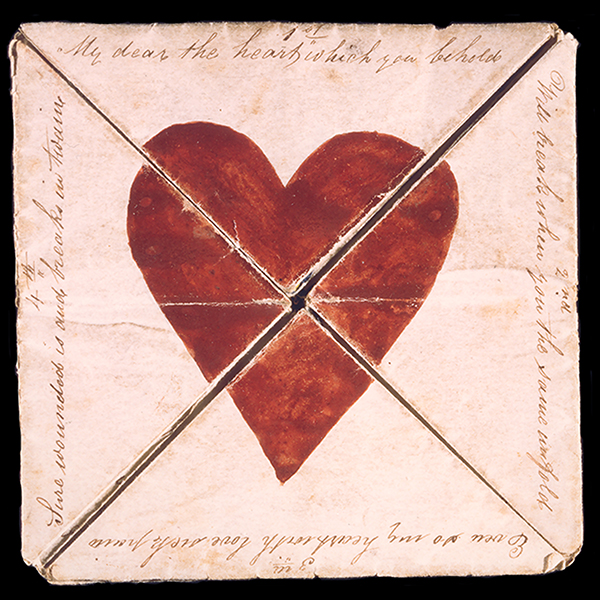 My dear the heart which you behold
2nd
Will break when you the same unfold
3rd
Even so my heart with love sick pain
4th
Sure wounded is and breaks in twain